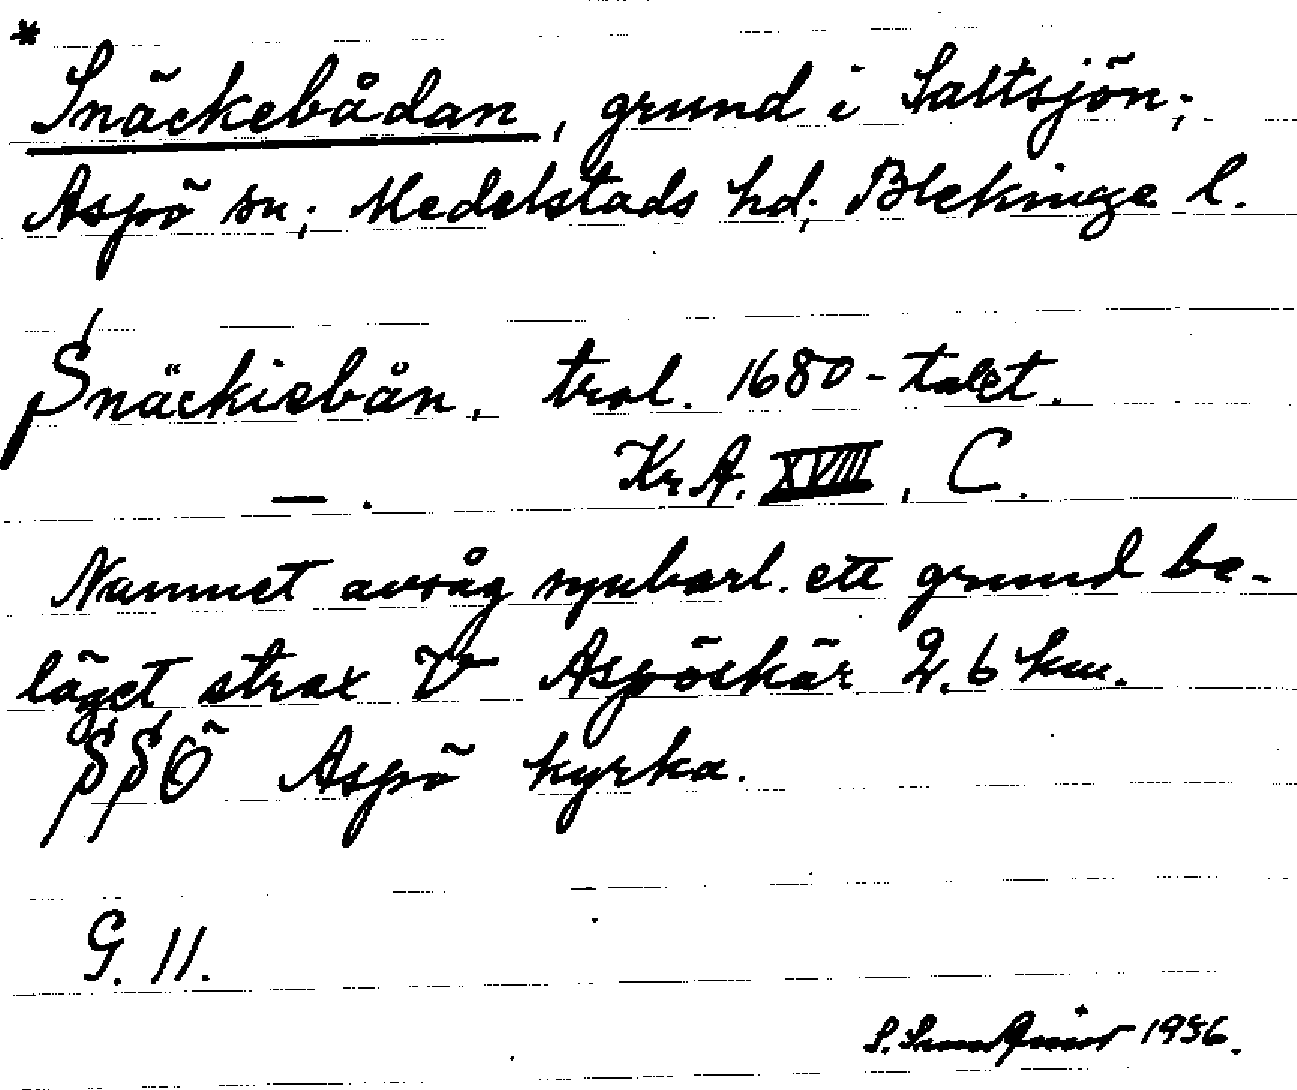 *
Snäckebådan, grund i Saltsjön;
Aspö sn; Medelstads hd; Blekinge l.
Snäckiebån. trol. 1680-talet.
—. Kr.A. XVIII, C.
Namnet avsåg synbarl. ett grund be-
läget strax V Aspöskär 2,6 km.
SSÖ Aspö kyrka.
G. 11.
S. 1936.